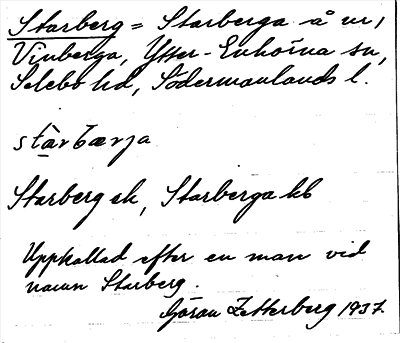 Starberg = Starberga å nr 1
Vinberga, Ytter-Enhörna sn,
Selebo hd, Södermanlands l.
stàrbærja
Starberg ek, Starberga kb
Uppkallad efter en man vid
namn Starberg.
Göran Zetterberg 1937.